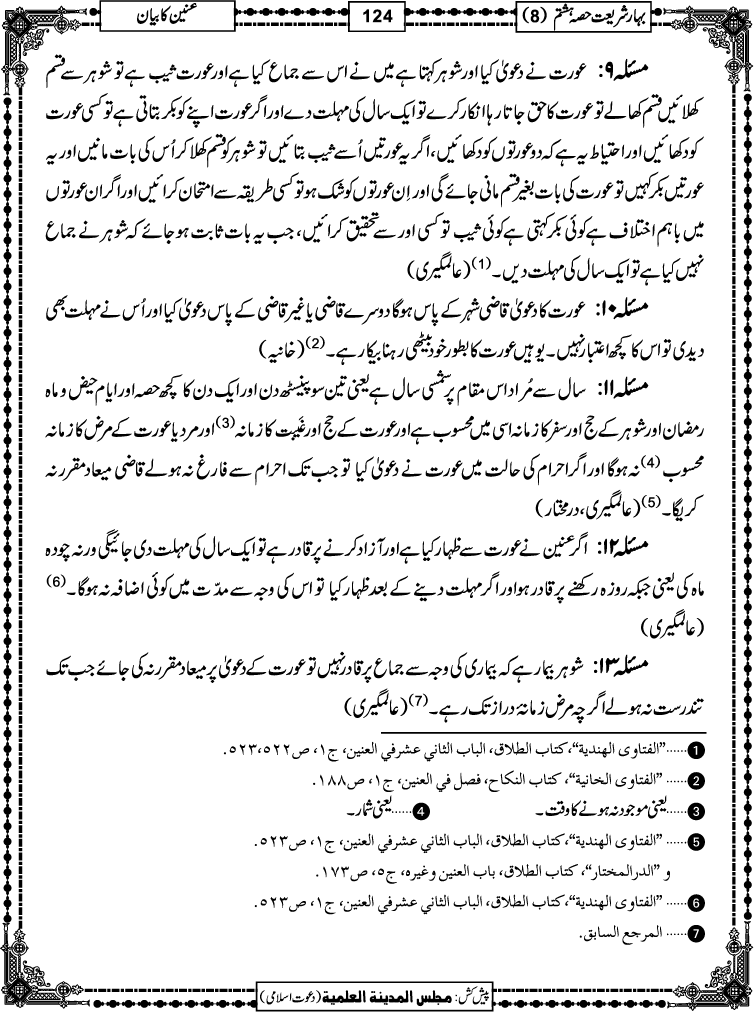 بہارِ شریعت حصہ ہشتم (8)
124
عنین کا بیان
مسئلہ ۹: عورت نے دعویٰ کیا اور شوہر کہتا ہے میں نے اس سے جماع کیا ہے اور عورت ثیب ہے تو شوہر سے قسم
کھلائیں قسم کھا لے تو عورت کا حق جاتا رہا انکار کرے تو ایک سال کی مہلت دے اور اگر عورت اپنے کو بکر بتاتی ہے تو کسی عورت
کو دکھائیں اور احتیاط یہ ہے کہ دو عورتوں کو دکھائیں، اگر یہ عورتیں اُسے ثیب بتائیں تو شوہر کو قسم کھلا کر اُس کی بات مانیں اور یہ
عورتیں بکر کہیں تو عورت کی بات بغیر قسم مانی جائے گی اور اِن عورتوں کو شک ہو تو کسی طریقہ سے امتحان کرائیں اور اگر ان عورتوں
میں باہم اختلاف ہے کوئی بکر کہتی ہے کوئی ثیب تو کسی اور سے تحقیق کرائیں، جب یہ بات ثابت ہو جائے کہ شوہر نے جماع
نہیں کیا ہے تو ایک سال کی مہلت دیں۔(1) (عالمگیری)
مسئلہ ۱۰: عورت کا دعویٰ قاضی شہر کے پاس ہوگا دوسرے قاضی یا غیر قاضی کے پاس دعویٰ کیا اور اُس نے مہلت بھی
دیدی تو اس کا کچھ اعتبار نہیں۔ یو ہیں عورت کا بطور خود بیٹھی رہنا بیکار ہے۔(2) (خانیہ)
مسئلہ ۱۱: سال سے مُراد اس مقام پر شمسی سال ہے یعنی تین سو پینسٹھ دن اور ایک دن کا کچھ حصہ اور ایام حیض و ماہ
رمضان اور شوہر کے حج اور سفر کا زمانہ اسی میں محسوب ہے اور عورت کے حج اور غَیبت کا زمانہ(3) اور مرد یا عورت کے مرض کا زمانہ
محسوب(4) نہ ہوگا اور اگر احرام کی حالت میں عورت نے دعویٰ کیا تو جب تک احرام سے فارغ نہ ہولے قاضی میعاد مقرر نہ
کریگا۔(5) (عالمگیری، درمختار)
مسئلہ ۱۲: اگر عنین نے عورت سے ظہار کیا ہے اور آزاد کرنے پر قادر ہے تو ایک سال کی مہلت دی جائیگی ورنہ چودہ
ماہ کی یعنی جبکہ روزہ رکھنے پر قادر ہو اور اگر مہلت دینے کے بعد ظہار کیا تو اس کی وجہ سے مدّت میں کوئی اضافہ نہ ہوگا۔(6)
(عالمگیری)
مسئلہ ۱۳: شوہر بیمار ہے کہ بیماری کی وجہ سے جماع پر قادر نہیں تو عورت کے دعویٰ پر میعاد مقرر نہ کی جائے جب تک
تندرست نہ ہولے اگرچہ مرض زمانۂ دراز تک رہے۔(7) (عالمگیری)
1......"الفتاوی الھندیة"، کتاب الطلاق، الباب الثاني عشر في العنین، ج۱، ص۵۲۲،۵۲۳.
2......"الفتاوی الخانیة"، کتاب النکاح، فصل في العنین، ج۱، ص۱۸۸.
3......یعنی موجود نہ ہونے کا وقت۔ 4......یعنی شمار۔
5......"الفتاوی الھندیة"، کتاب الطلاق، الباب الثاني عشر في العنین، ج۱، ص۵۲۳.
و "الدرالمختار"، کتاب الطلاق، باب العنین وغیرہ، ج۵، ص۱۷۳.
6......"الفتاوی الھندیة"، کتاب الطلاق، الباب الثاني عشر في العنین، ج۱، ص۵۲۳.
7......المرجع السابق.
پیش کش: مجلس المدینة العلمیة (دعوت اسلامی)